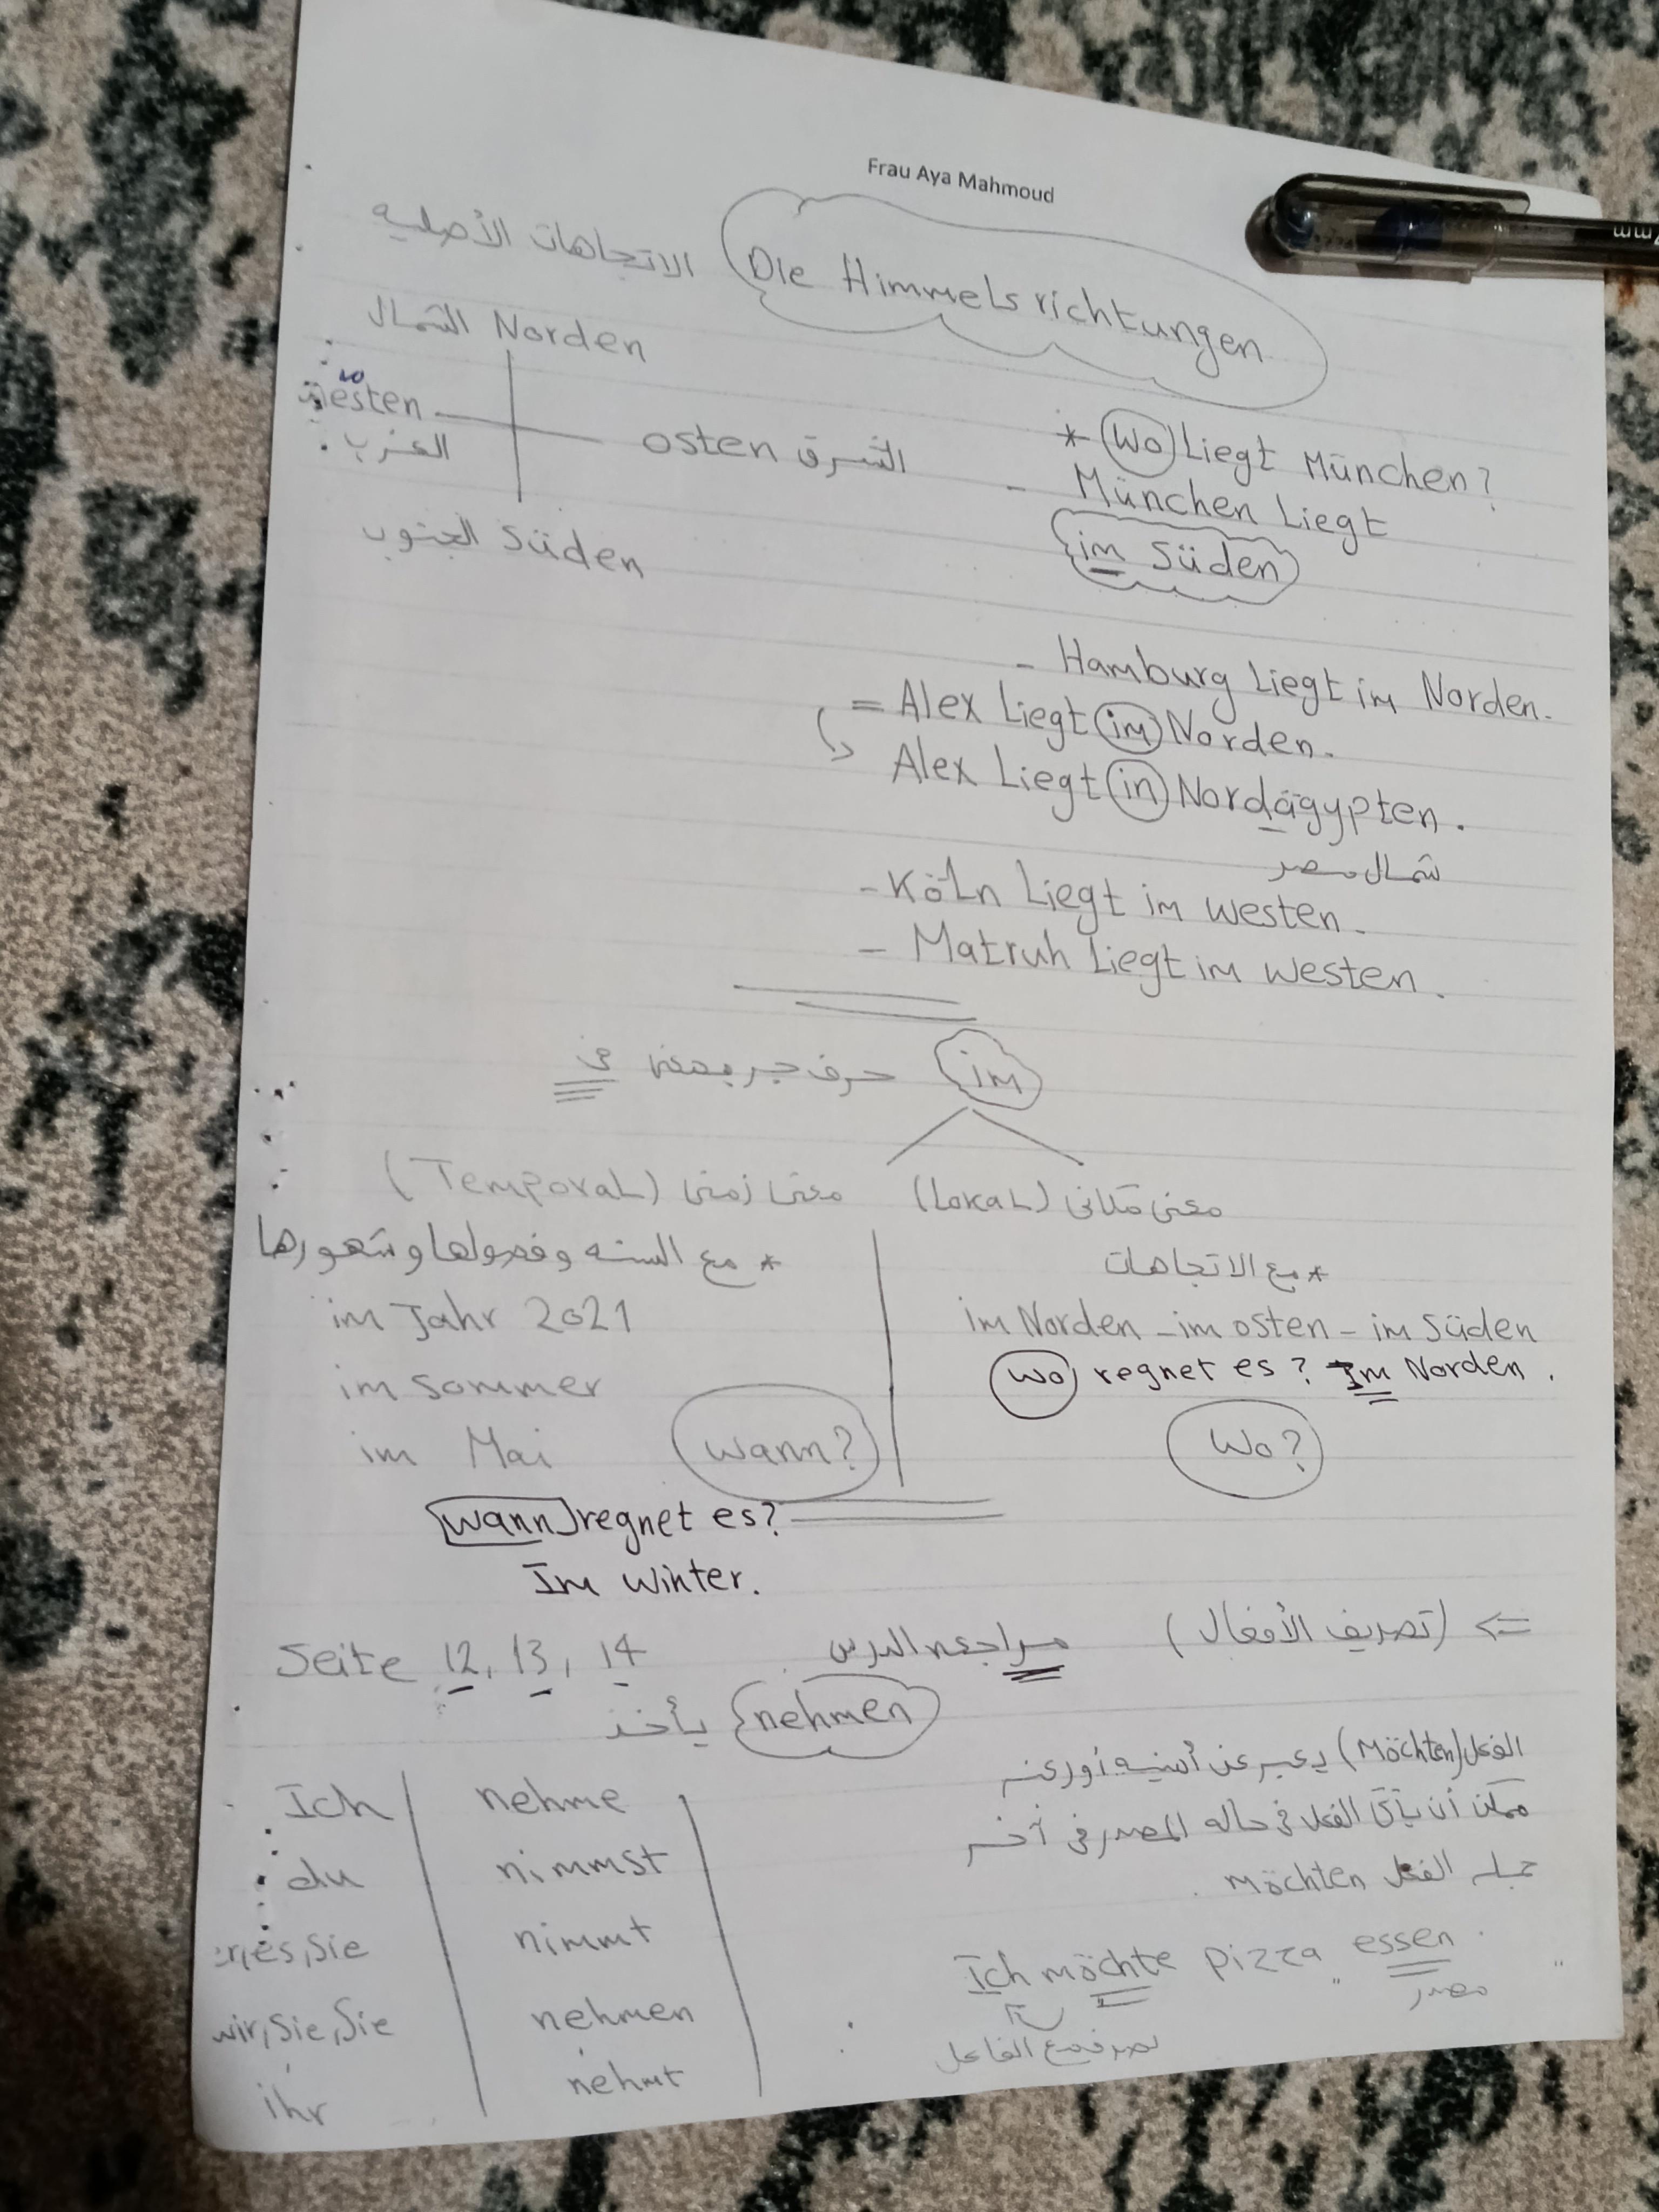 Frau Aya Mahmoud
الاتجاهات الأصليه Die Himmelsrichtungen
الشمال Norden
westen
الغرب
osten الشرق
الجنوب Süden
* Wo Liegt München?
- München Liegt
im Süden
- Hamburg Liegt im Norden.
= Alex Liegt im Norden.
Alex Liegt in Nordägypten.
شمال مصر
- Köln Liegt im westen.
- Matruh Liegt im westen.
im حرف جر بمعنى فى
معنى مكانى (Lokal)
معنى زمنى (Temporal)
* مع الاتجاهات
im Norden - im osten - im Süden
Wo regnet es? Im Norden.
Wo?
* مع السنه وفصولها وشهورها
im Jahr 2021
im Sommer
im Mai
wann?
wann regnet es?
Im Winter.
⇐ (تصريف الأفعال) مراجعه الدرس Seite 12, 13, 14
nehmen يأخذ
Ich nehme
du nimmst
er,es,Sie nimmt
wir,Sie,Sie nehmen
ihr nehmt
الفعل (Möchten) يعبر عن أمنيه أو رغبه
ممكن أن يأتى الفعل فى حاله المصدر فى آخر
جمله الفعل möchten
Ich möchte pizza essen
مصدر
تصرف مع الفاعل